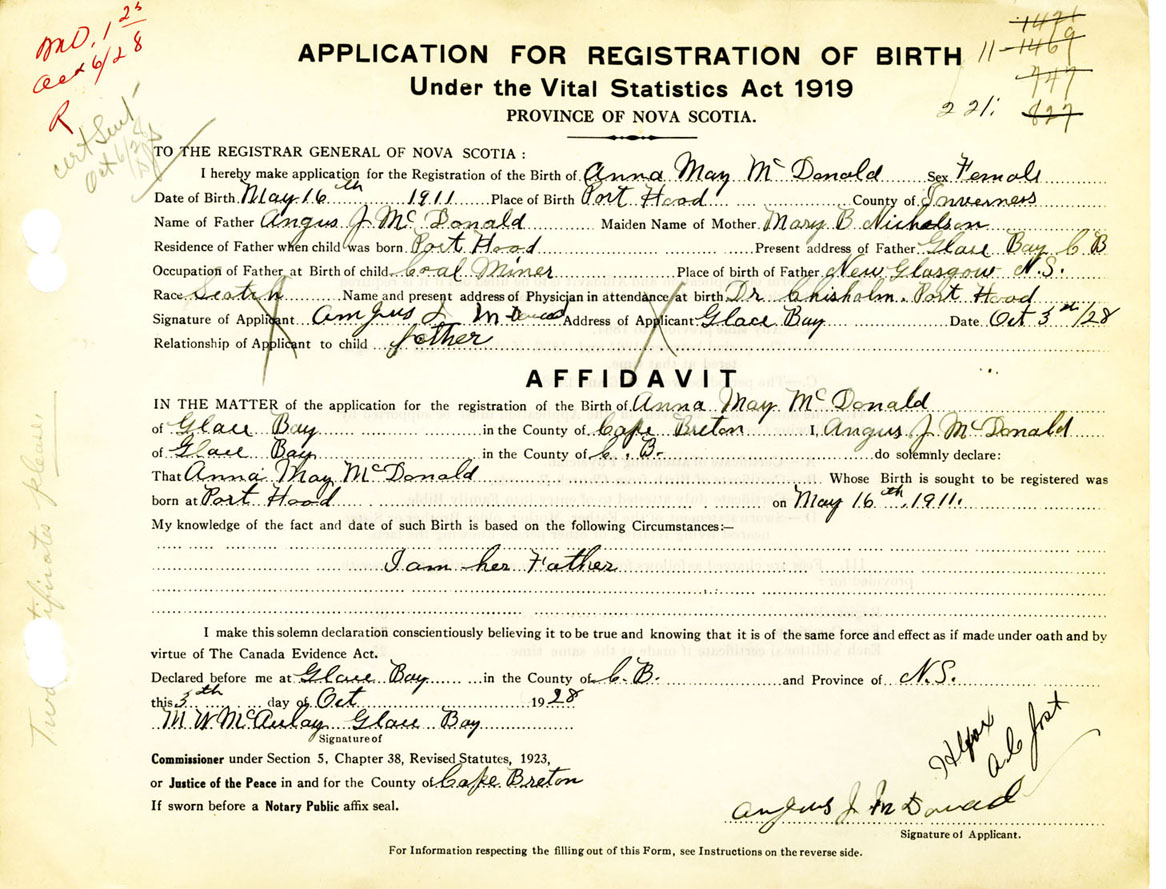 M.O. 1 25
Oct 6/28
R
Cert Sent
Oct 6/28
1471
11-1469
747
221; 827
APPLICATION FOR REGISTRATION OF BIRTH
Under the Vital Statistics Act 1919
PROVINCE OF NOVA SCOTIA.
TO THE REGISTRAR GENERAL OF NOVA SCOTIA :
I hereby make application for the Registration of the Birth of Anna May McDonald Sex Female
Date of Birth May 16th 1911 Place of Birth Port Hood County of Inverness
Name of Father Angus J McDonald Maiden Name of Mother Mary B Nicholson
Residence of Father when child was born Port Hood Present address of Father Glace Bay C B
Occupation of Father at Birth of child Coal Miner Place of birth of Father New Glasgow N.S.
Race Scotch Name and present address of Physician in attendance at birth Dr Chisholm. Port Hood
Signature of Applicant Angus J McDonald Address of Applicant Glace Bay Date Oct 3rd/28
Relationship of Applicant to child father
AFFIDAVIT
IN THE MATTER of the application for the registration of the Birth of Anna May McDonald
of Glace Bay in the County of Cape Breton I, Angus J McDonald
of Glace Bay in the County of C. B. do solemnly declare:
That Anna May McDonald Whose Birth is sought to be registered was
born at Port Hood on May 16th, 1911.
My knowledge of the fact and date of such Birth is based on the following Circumstances:—
I am her Father
I make this solemn declaration conscientiously believing it to be true and knowing that it is of the same force and effect as if made under oath and by
virtue of The Canada Evidence Act.
Declared before me at Glace Bay in the County of C. B. and Province of N.S.
this 3th day of Oct 1928
M W McAulay Glace Bay
Signature of
Commissioner under Section 5, Chapter 38, Revised Statutes, 1923,
or Justice of the Peace in and for the County of Cape Breton
If sworn before a Notary Public affix seal.
Hlfax
A C Jost
Angus J McDonald
Signature of Applicant.
For Information respecting the filling out of this Form, see Instructions on the reverse side.
Two certificates please.